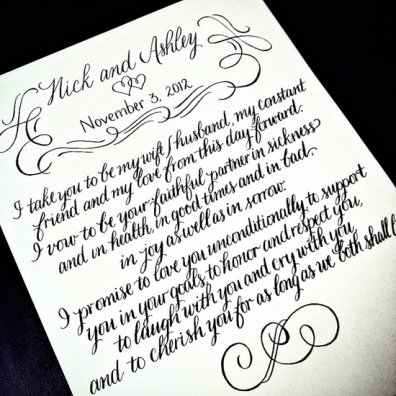 Nick and Ashley
November 3, 2012
I take you to be my wife/husband, my constant
friend and my love from this day forward.
I vow to be your faithful partner in sickness
and in health, in good times and in bad,
in joy as well as in sorrow.
I promise to love you unconditionally to support
you in your goals to honor and respect you,
to laugh with you and cry with you
and to cherish you for as long as we both shall